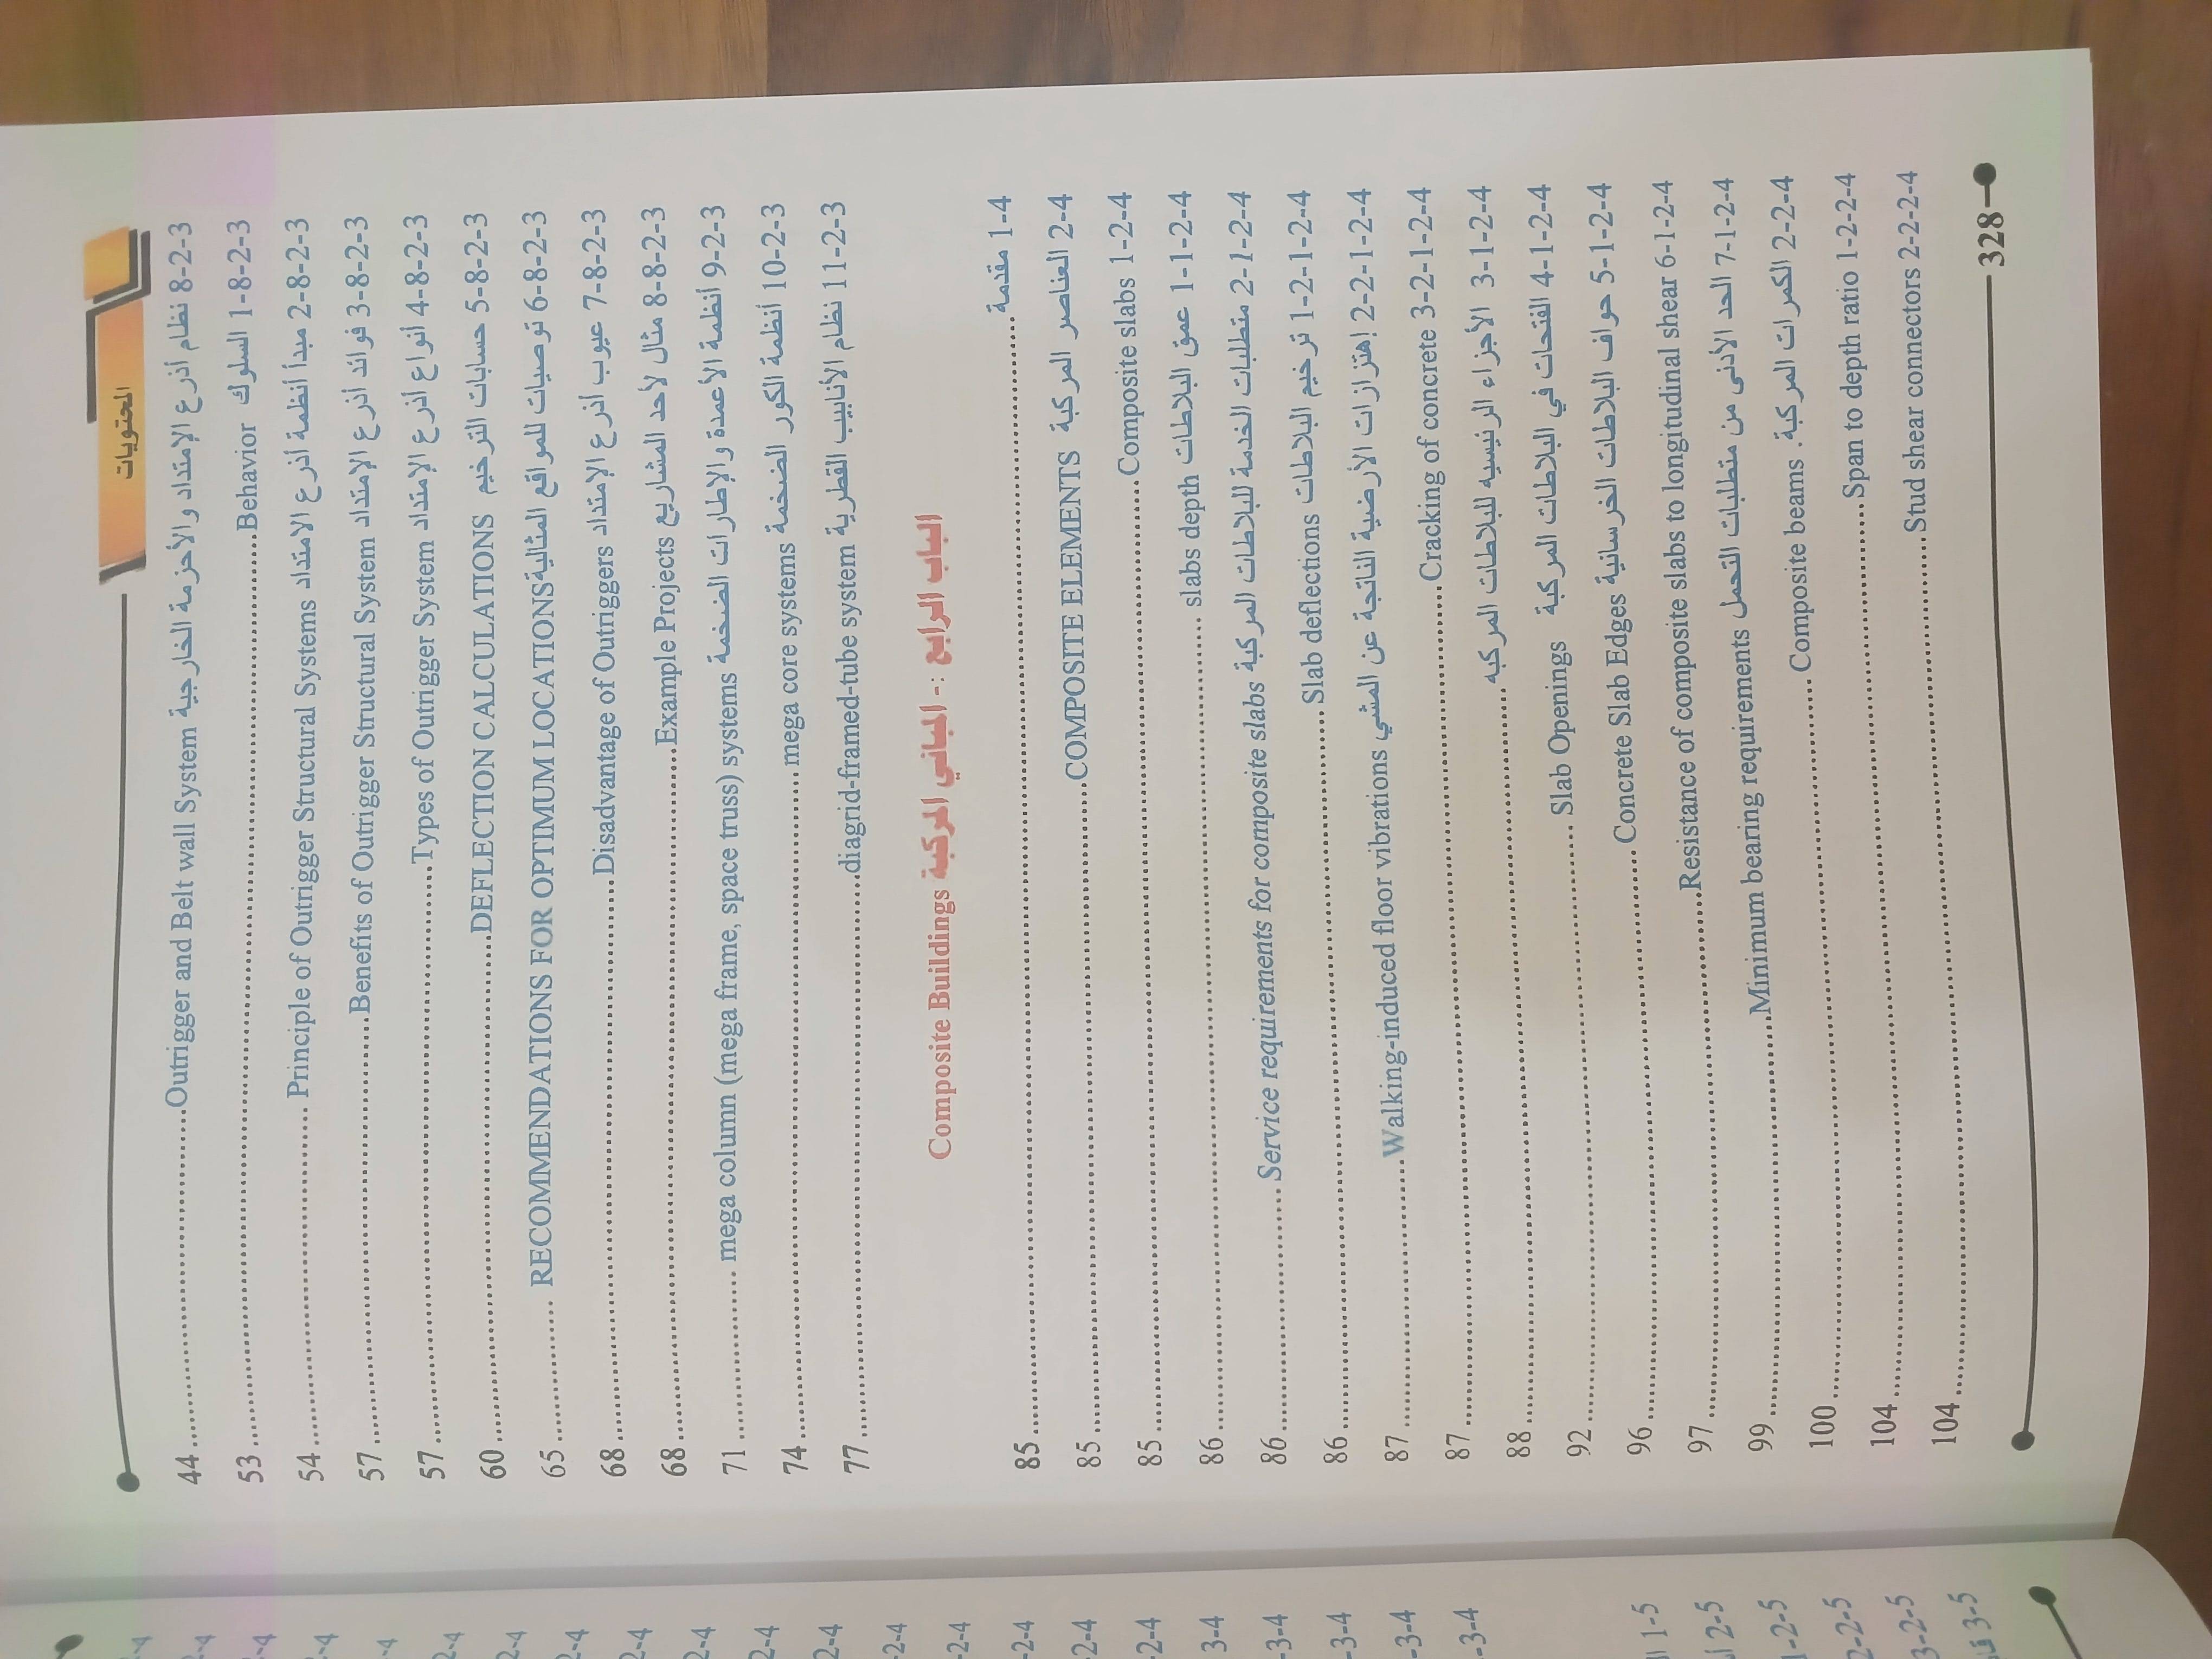 المحتويات
8-2-3 نظام أذرع الإمتداد والأحزمة الخارجية Outrigger and Belt wall System ........ 44
1-8-2-3 السلوك Behavior ........ 53
2-8-2-3 مبدأ أنظمة أذرع الامتداد Principle of Outrigger Structural Systems ........ 54
3-8-2-3 فوائد أذرع الإمتداد Benefits of Outrigger Structural System ........ 57
4-8-2-3 أنواع أذرع الإمتداد Types of Outrigger System ........ 57
5-8-2-3 حسابات الترخيم DEFLECTION CALCULATIONS ........ 60
6-8-2-3 توصيات للمواقع المثالية RECOMMENDATIONS FOR OPTIMUM LOCATIONS ........ 65
7-8-2-3 عيوب أذرع الإمتداد Disadvantage of Outriggers ........ 68
8-8-2-3 مثال لأحد المشاريع Example Projects ........ 68
9-2-3 أنظمة الأعمدة والإطارات الضخمة mega column (mega frame, space truss) systems ........ 71
10-2-3 أنظمة الكور الضخمة mega core systems ........ 74
11-2-3 نظام الأنابيب القطرية diagrid-framed-tube system ........ 77
الباب الرابع :- المباني المركبة Composite Buildings
1-4 مقدمة ........ 85
2-4 العناصر المركبة COMPOSITE ELEMENTS ........ 85
1-2-4 Composite slabs ........ 85
1-1-2-4 عمق البلاطات slabs depth ........ 86
2-1-2-4 متطلبات الخدمة للبلاطات المركبة Service requirements for composite slabs ........ 86
1-2-1-2-4 ترخيم البلاطات Slab deflections ........ 86
2-2-1-2-4 إهتزازات الأرضية الناتجة عن المشي Walking-induced floor vibrations ........ 87
3-2-1-2-4 Cracking of concrete ........ 87
3-1-2-4 الأجزاء الرئيسيه للبلاطات المركبه ........ 88
4-1-2-4 الفتحات في البلاطات المركبة Slab Openings ........ 92
5-1-2-4 حواف البلاطات الخرسانية Concrete Slab Edges ........ 96
6-1-2-4 Resistance of composite slabs to longitudinal shear ........ 97
7-1-2-4 الحد الأدنى من متطلبات التحمل Minimum bearing requirements ........ 99
2-2-4 الكمرات المركبة. Composite beams ........ 100
1-2-2-4 Span to depth ratio ........ 104
2-2-2-4 Stud shear connectors ........ 104
328